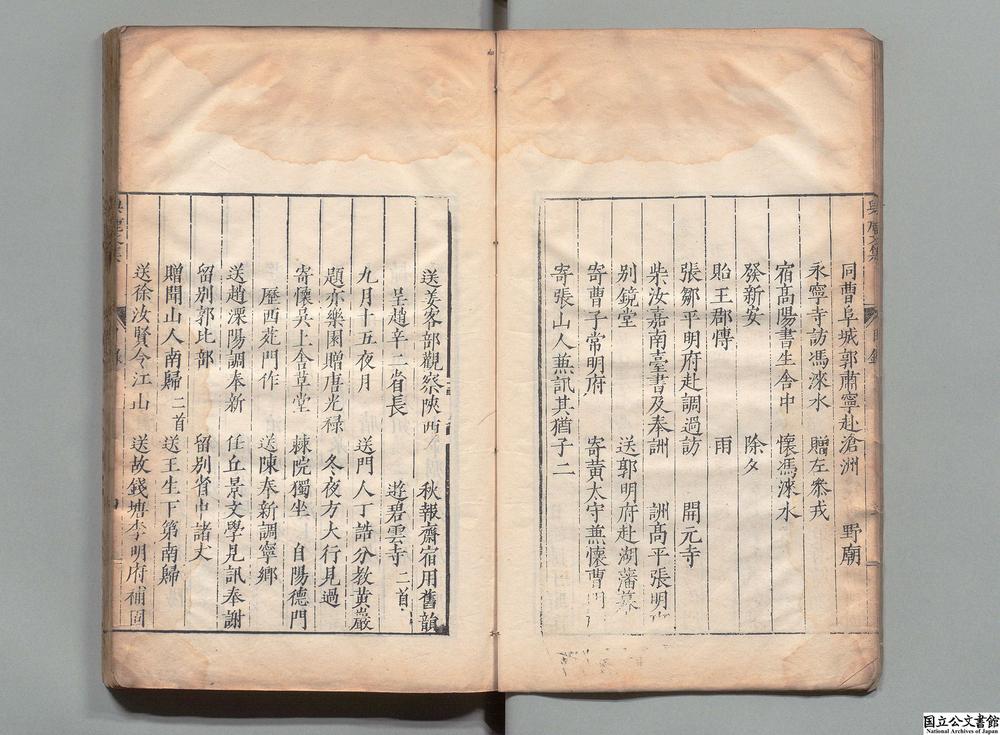 同曹阜城郭肅寧赴滄洲 野廟
永寧寺訪馮淶水 贈左叅戎
宿髙陽書生舍中 懷馮淶水
發新安 除夕
貽王郡傳 雨
張鄒平明府赴調過訪 開元寺
柴汝嘉南臺書及奉詶 詶髙平張明
别鏡堂 送郭明府赴湖藩幕
寄曹子常明府 寄黄太守兼懷曹明
寄張山人兼訊其猶子二
送姜客部觀察陜西 秋報齋宿用舊韻
呈趙辛二省長 遊碧雲寺二首
九月十五夜月 送門人丁誥分教黄巖
題亦樂園贈唐光禄 冬夜方大行見過
寄懷吳上舍草堂 棘院獨坐 自陽德門
歷西苑門作 送陳奉新調寧鄉
送趙溧陽調奉新 任丘景文學見訊奉謝
留别郭比部 留别省中諸丈
贈聞山人南歸二首 送王生下第南歸
送徐汝賢令江山 送故錢塘李明府補固
国立公文書館
National Archives of Japan